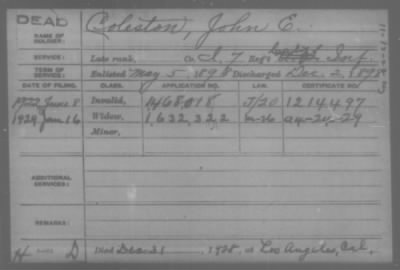 DEAD
NAME OF SOLDIER: Coleston, John E.
SERVICE: Late rank, Co. I, 7 Reg't Inf.
TERM OF SERVICE: Enlisted May 5, 1898 Discharged Dec. 2, 1898
DATE OF FILING. CLASS. APPLICATION NO. LAW. CERTIFICATE NO.
1922 June 8 Invalid, 1468,018 J/20 1214497
1929 Jan 16 Widow, 1,632,322 m-26 a4-24-29
Minor,
ADDITIONAL SERVICES:
REMARKS:
D Died Dec. 31 1928, at Los Angeles, Cal.